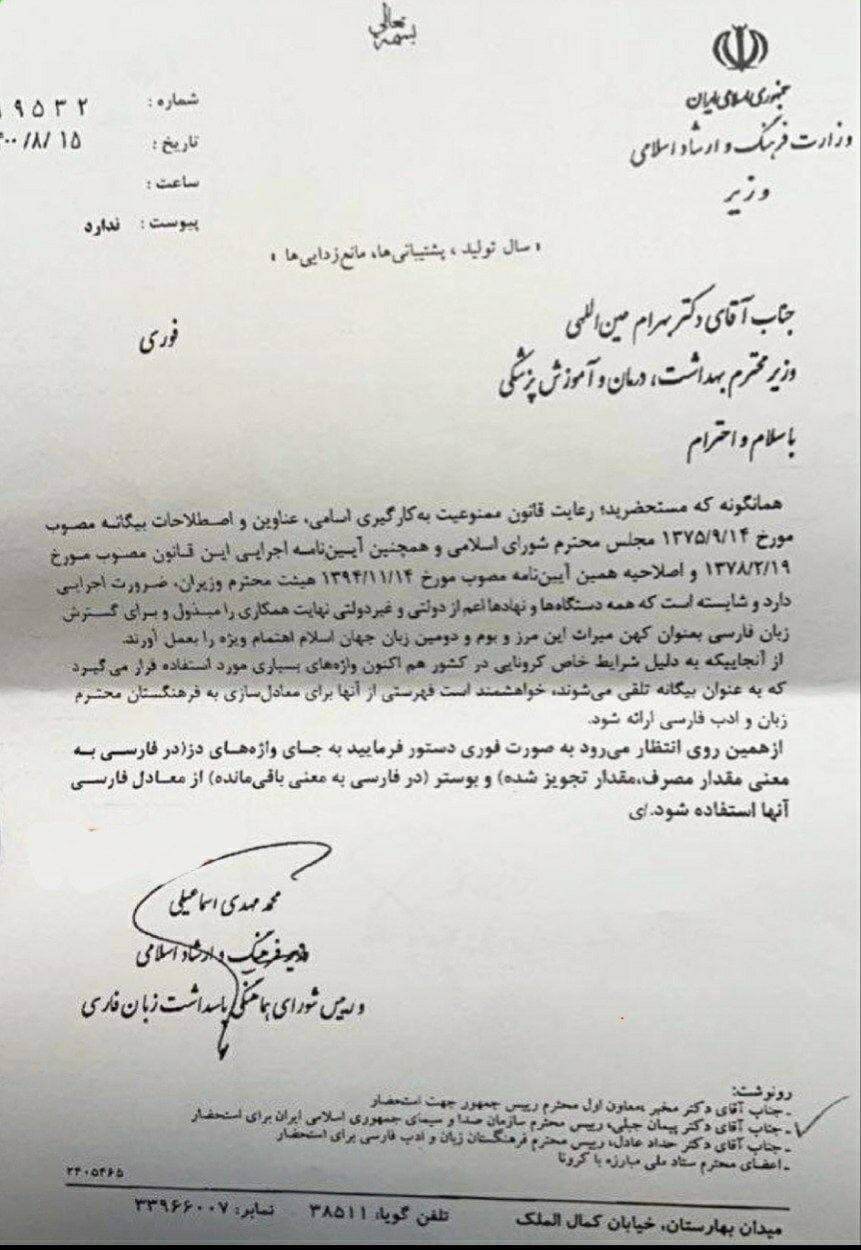 بسمه تعالی
جمهوری اسلامی ایران
وزارت فرهنگ و ارشاد اسلامی
وزیر
شماره: ۱۹۵۳۲
تاریخ: ۰۰/۸/۱۵
ساعت:
پیوست: ندارد
« سال تولید ، پشتیبانی‌ها، مانع‌زدایی‌ها »
جناب آقای دکتر بهرام عین‌اللهی
فوری
وزیر محترم بهداشت، درمان و آموزش پزشکی
با سلام و احترام
همانگونه که مستحضرید؛ رعایت قانون ممنوعیت به‌کارگیری اسامی، عناوین و اصطلاحات بیگانه مصوب
مورخ ۱۳۷۵/۹/۱۴ مجلس محترم شورای اسلامی و همچنین آیین‌نامه اجرایی این قانون مصوب مورخ
۱۳۷۸/۲/۱۹ و اصلاحیه همین آیین‌نامه مصوب مورخ ۱۳۹۴/۱۱/۱۴ هیئت محترم وزیران، ضرورت اجرایی
دارد و شایسته است که همه دستگاه‌ها و نهادها اعم از دولتی و غیردولتی نهایت همکاری را مبذول و برای گسترش
زبان فارسی بعنوان کهن میراث این مرز و بوم و دومین زبان جهان اسلام اهتمام ویژه را بعمل آورند.
از آنجاییکه به دلیل شرایط خاص کرونایی در کشور هم اکنون واژه‌های بسیاری مورد استفاده قرار می‌گیرد
که به عنوان بیگانه تلقی می‌شوند، خواهشمند است فهرستی از آنها برای معادل‌سازی به فرهنگستان محترم
زبان و ادب فارسی ارائه شود.
ازهمین روی انتظار می‌رود به صورت فوری دستور فرمایید به جای واژه‌های دز(در فارسی به
معنی مقدار مصرف،مقدار تجویز شده) و بوستر (در فارسی به معنی باقی‌مانده) از معادل فارسی
آنها استفاده شود./ی
محمد مهدی اسماعیلی
وزیر فرهنگ و ارشاد اسلامی
و رییس شورای هماهنگی پاسداشت زبان فارسی
رونوشت:
- جناب آقای دکتر مخبر ،معاون اول محترم رییس جمهور جهت استحضار
- جناب آقای دکتر پیمان جبلی، رییس محترم سازمان صدا و سیمای جمهوری اسلامی ایران برای استحضار
- جناب آقای دکتر حداد عادل، رییس محترم فرهنگستان زبان و ادب فارسی برای استحضار
- اعضای محترم ستاد ملی مبارزه با کرونا
۲۴۰۵۴۶۵
میدان بهارستان، خیابان کمال الملک تلفن گویا: ۳۸۵۱۱ نمابر: ۳۳۹۶۶۰۰۷